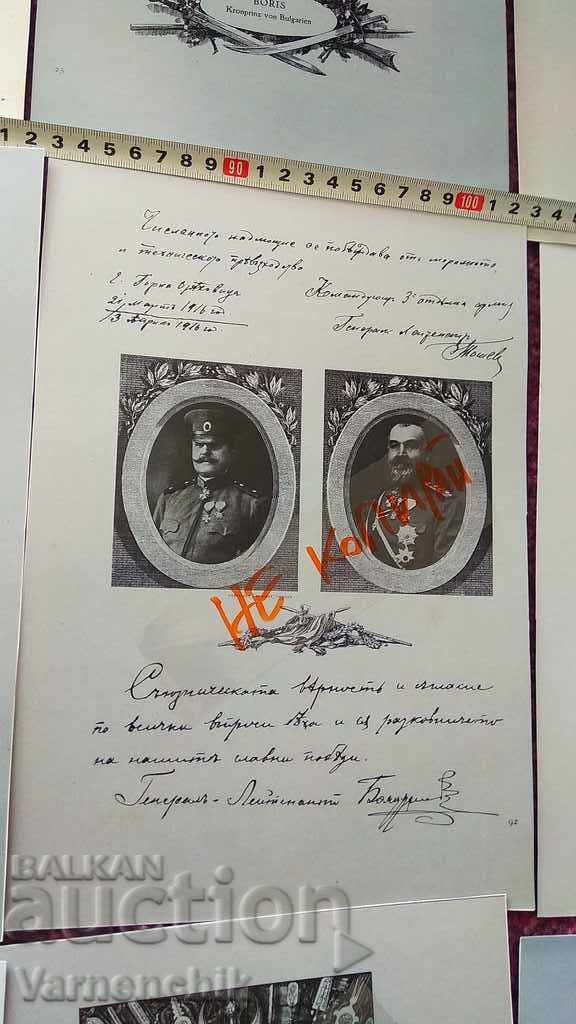 BORIS
Kronprinz von Bulgarien
23
1 2 3 4 5 6 7 8 9 90 1 2 3 4 5 6 7 8 9 100 1 2 3 4 5
Численното надмощие се побѣждава отъ моралното
и техническото прѣвъзходство
Командующъ 3а отдѣлна армия
21 Мартъ 1916 год
/3 Април 1916 год.
Генералъ Лейтенантъ
Тошевъ
НЕ КОПИРАЙ
Съюзническата вѣрность и съгласие
по всички въпроси бѣха и сѫ разковничето
на нашитѣ славни победи.
Генералъ-Лейтенантъ
92
BALKAN
auction
Varnenchik